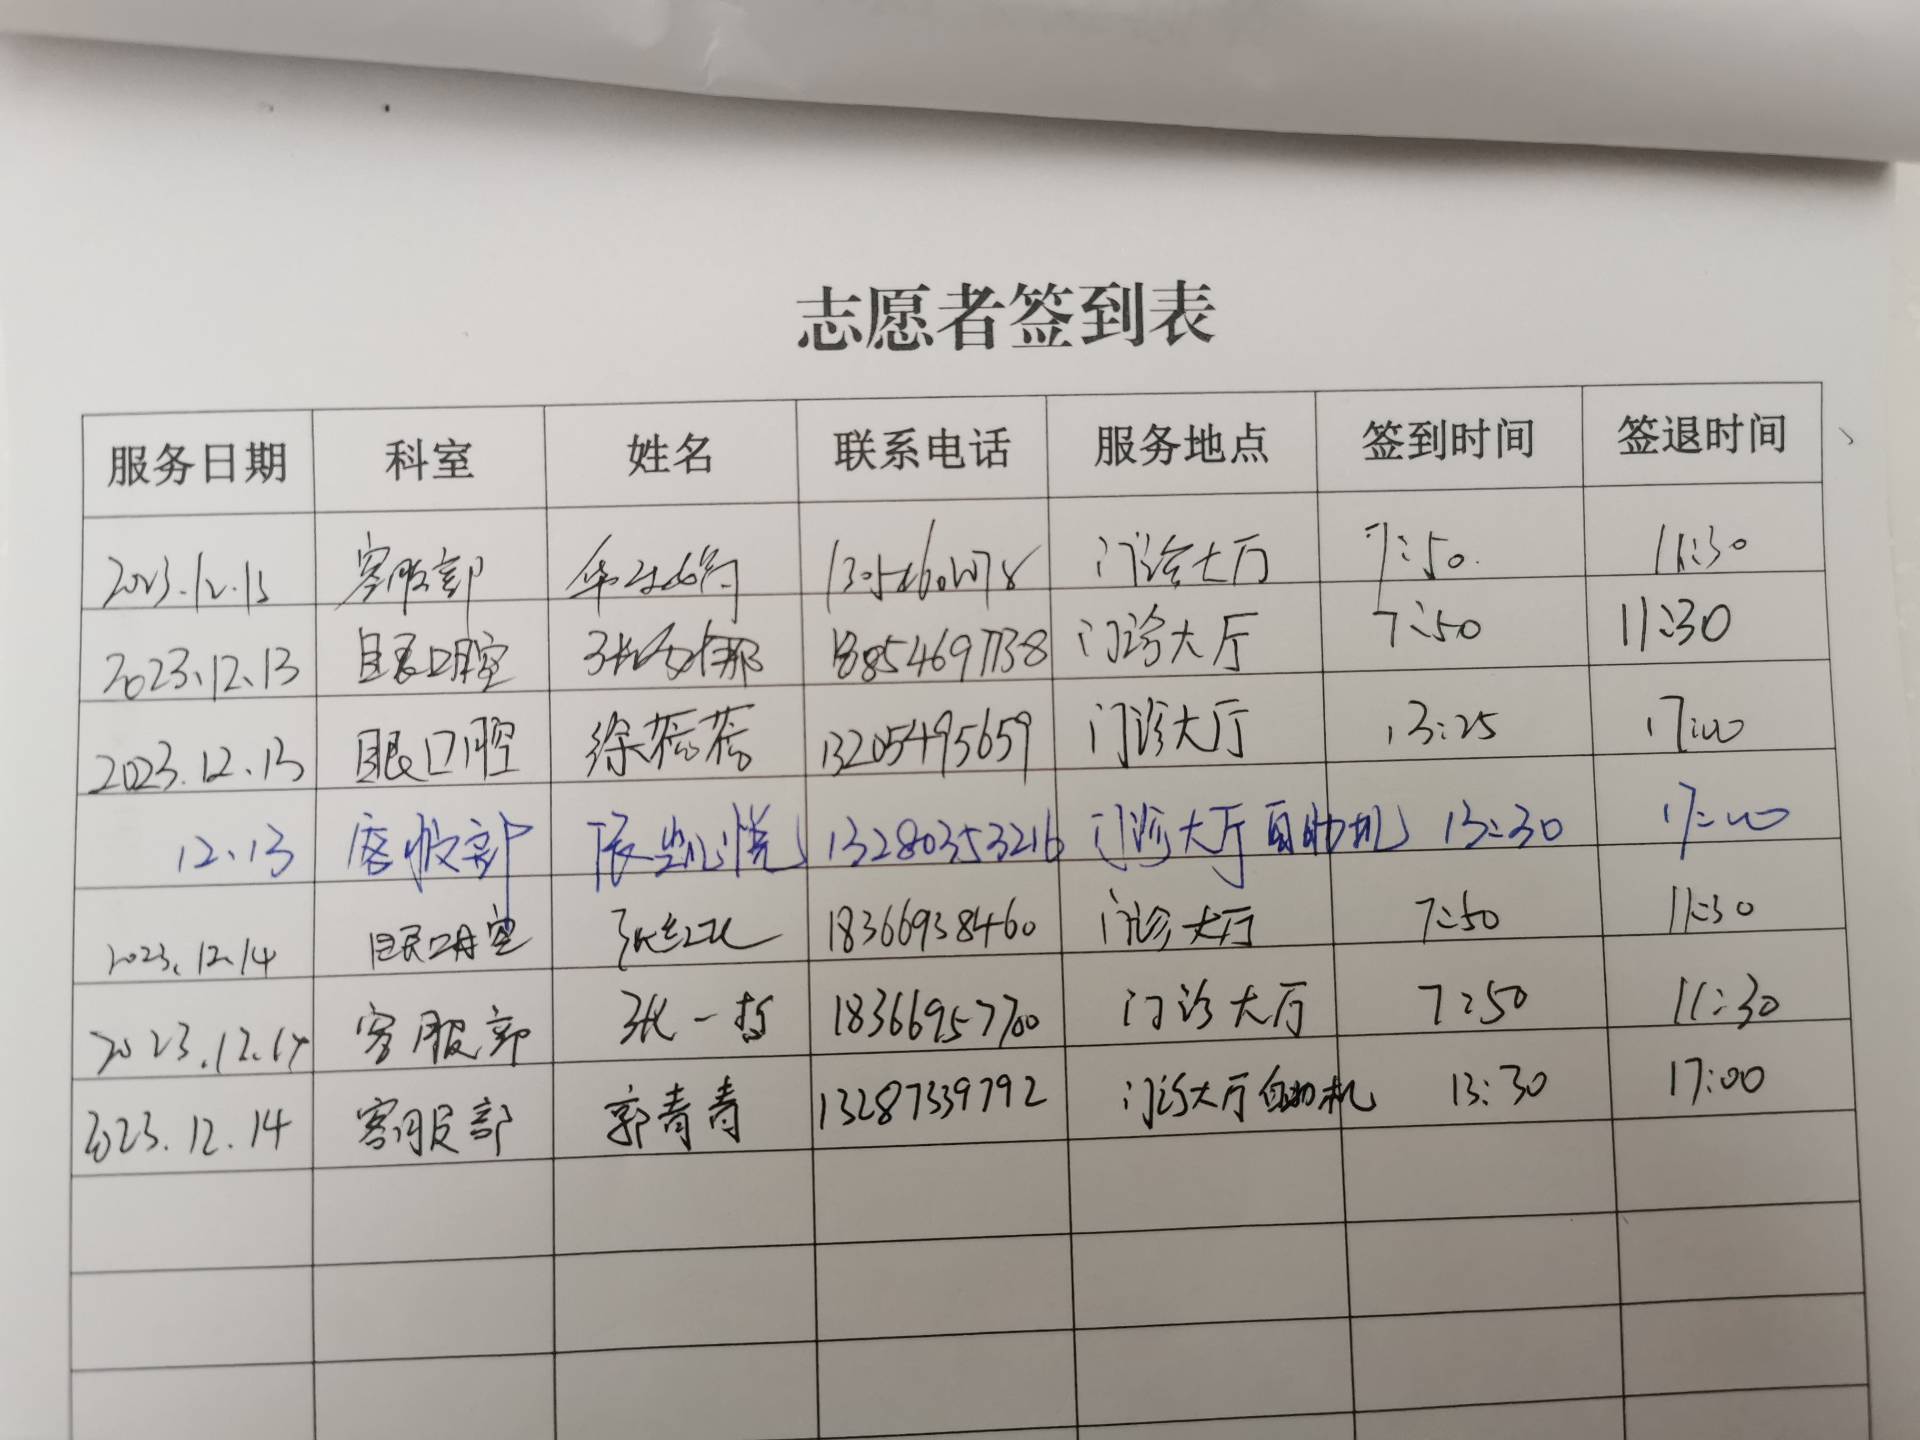 志愿者签到表
服务日期 科室 姓名 联系电话 服务地点 签到时间 签退时间
2023.12.13 客服部 门诊大厅 7:50 11:30
2023.12.13 眼口腔室 18854697738 门诊大厅 7:50 11:30
2023.12.13 眼口腔 徐蓓蓓 13205495659 门诊大厅 13:25 17:00
12.13 客服部 13280353216 门诊大厅自助机 13:30 17:00
2023.12.14 眼口腔 张红 18366938460 门诊大厅 7:50 11:30
2023.12.14 客服部 张一 18366957700 门诊大厅 7:50 11:30
2023.12.14 客服部 郭青青 13287339792 门诊大厅自助机 13:30 17:00